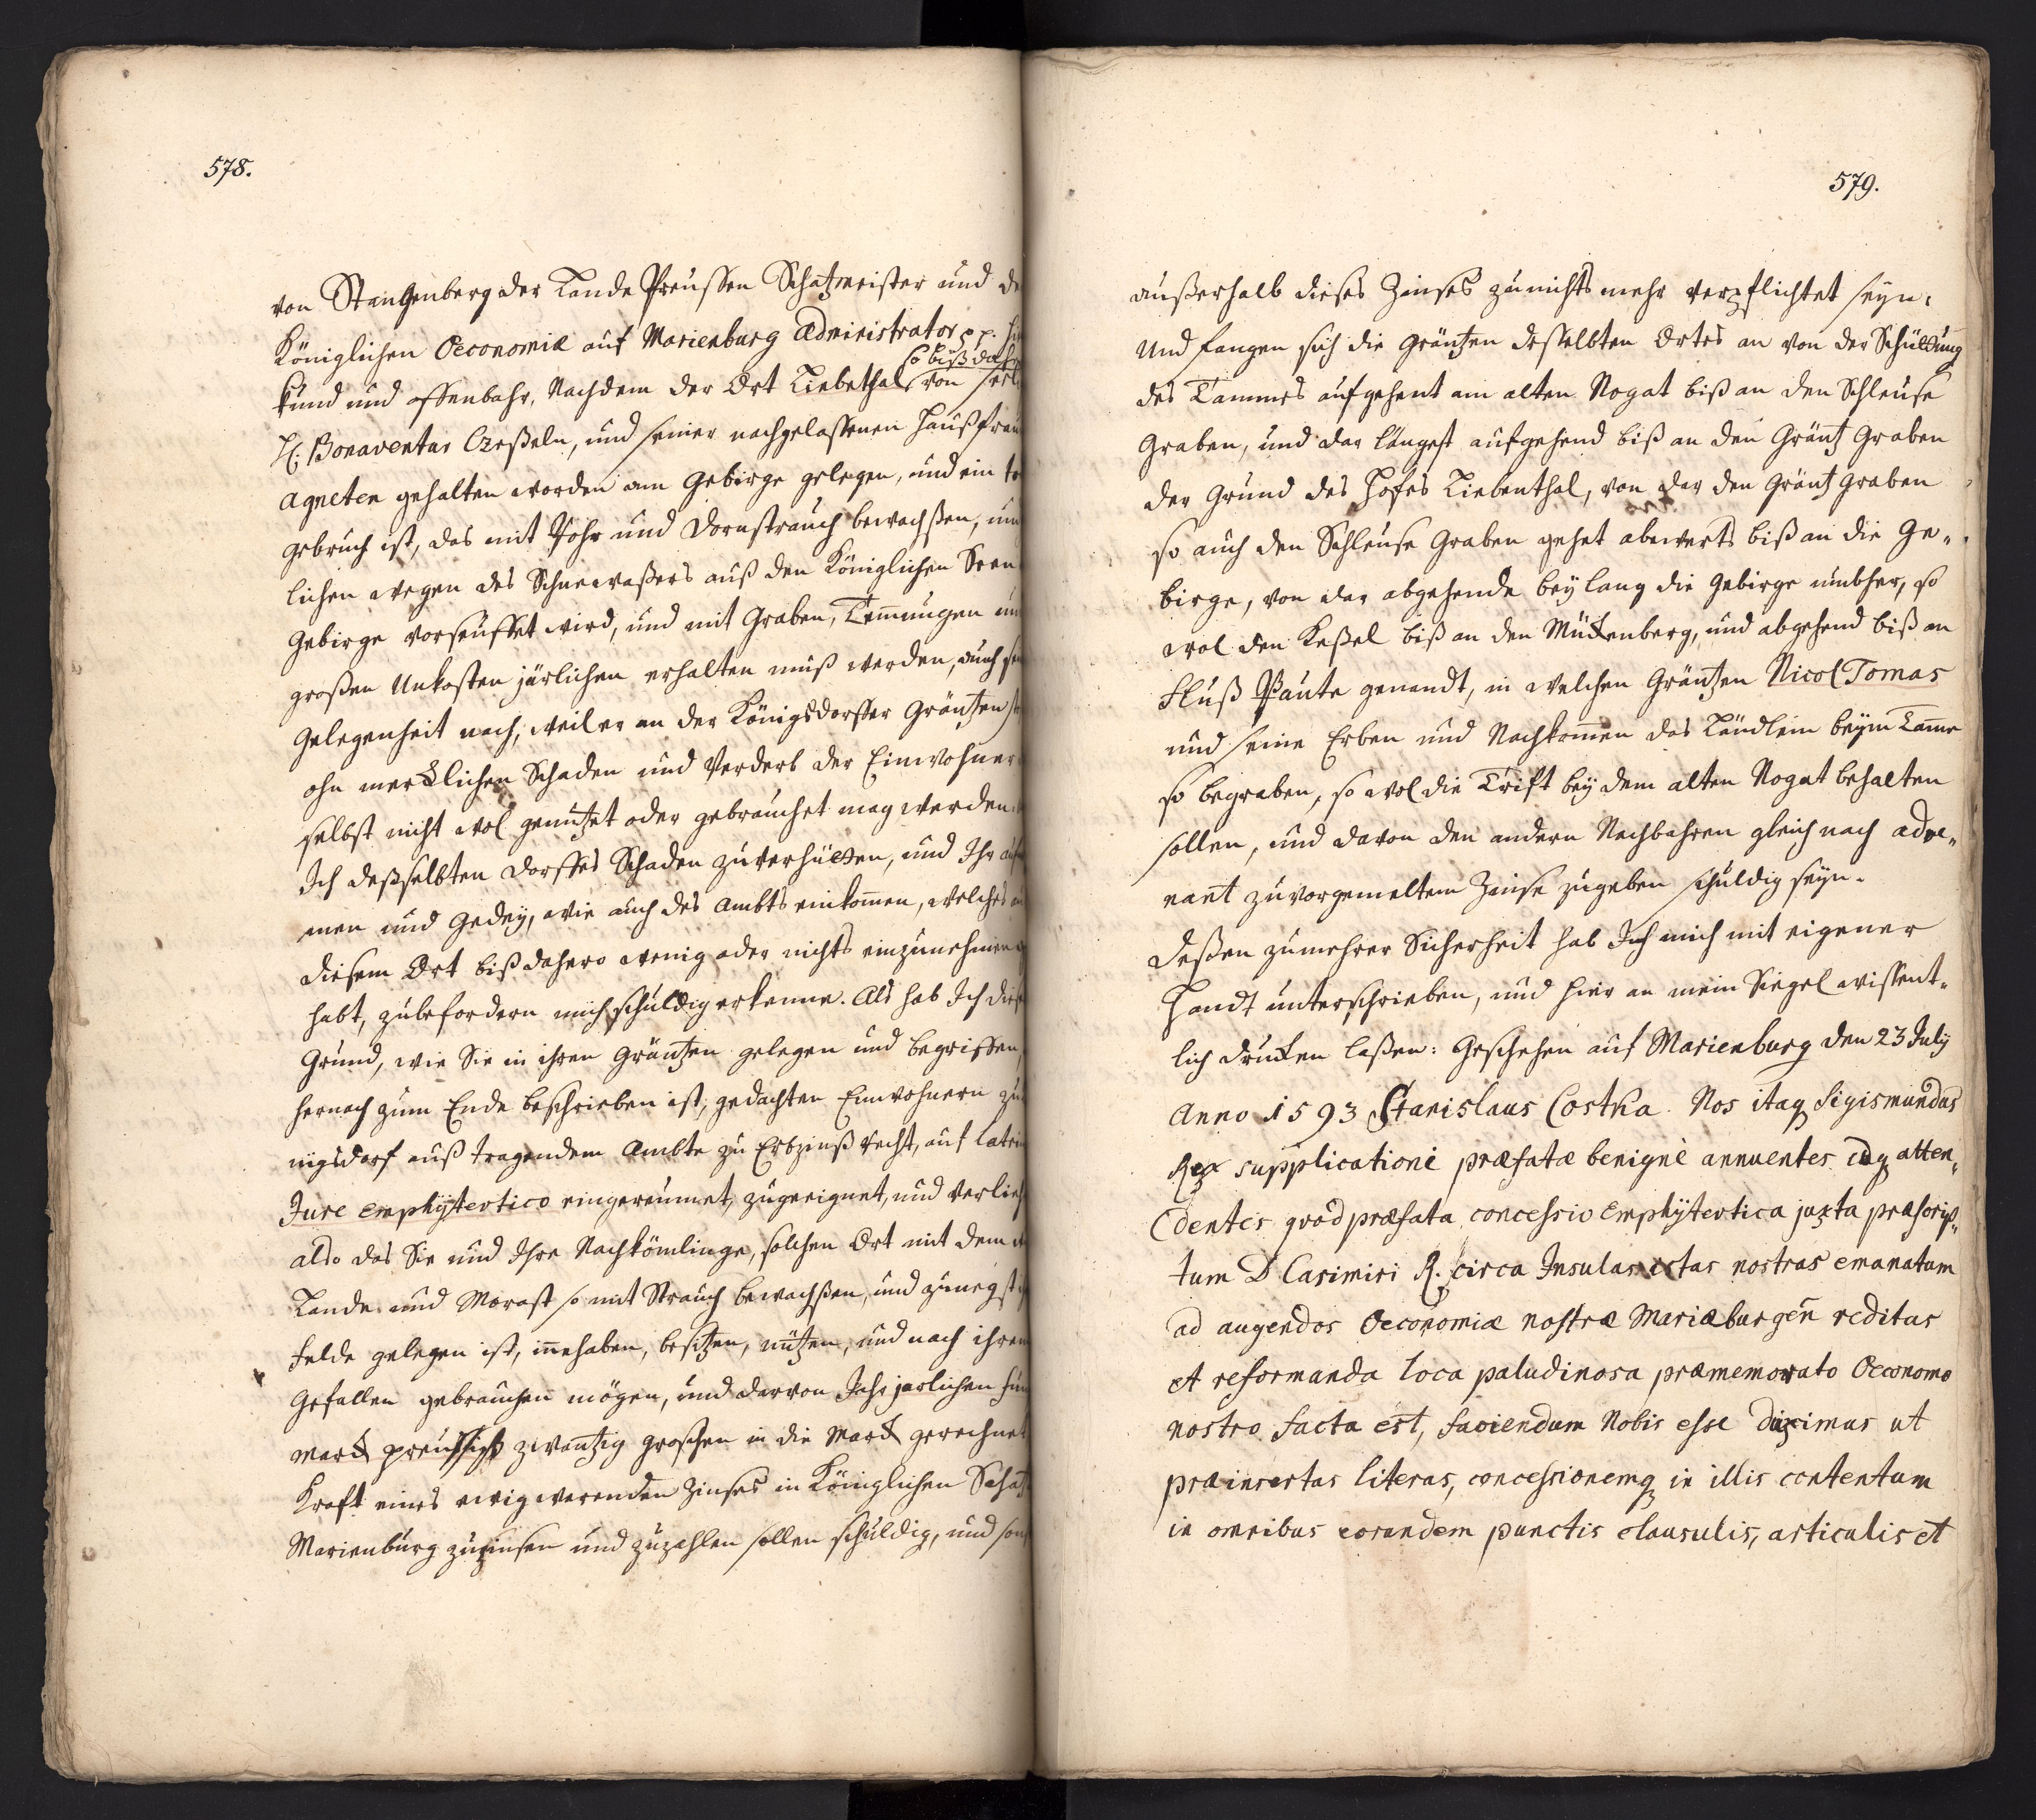 578.
von Stangenberg der Lande Preussen Schatzmeister und de
Königlichen Oeconomiæ auf Marienburg Administrator pp.
so biß daher
kund und offenbahr, Nachdem der Ort Liebethal, von
H. Bonaventar Czeßeln, und seiner nachgelassenen Haußfrau
Agneten gehalten worden am Gebirge gelegen, und ein
gebruch ist, das mit Rohr und Dornstrauch bewachßen,
lichen wegen des Schneewaßers auß den Königlichen Seen
Gebirge vorseuffet wird, und mit Graben, Temungen un
großen Unkosten järlichen erhalten muß werden, auch
Gelegenheit nach, weil er an der Königsdorffer Gräntzen
ohn mercklichen Schaden und Verderb der Einwohner
selbst nicht wol genutzet oder gebrauchet mag werden.
Ich deßselbten dorffes Schaden zuverhütten, und Ihr auf
men und Gedey, wie auch des Ambts einkomen, welches
diesem Ort biß dahero wenig oder nichts einzunehmen
habt, zubefordern mich schuldig erkenne. Als hab Ich dies
Grund, wie Sie in ihren Gräntzen gelegen und begriffen,
hernach zum Ende beschrieben ist, gedachten Einwohnern zu
nigsdorf auß tragendem Ambte zu Erbzinß recht, auf latei
Jure emphÿtevtico eingereumet, zugeeignet, und verlieh
also das Sie und Ihre Nachkömlinge, solchen Ort mit dem
Lande und Morast so mit Strauch bewachßen, und zunegst
felde gelegen ist, inehaben, besitzen, nützen, und nach ihrem
Gefallen gebrauchen mögen, und darvon Jahr jarlichen
marck preussisch zwantzig groschen in die Marck gerechnet
Kraft eines ewig werenden Zinses in Königlichen Schatz
Marienburg zuzinsen und zuzahlen sollen schuldig, und son
579.
außerhalb dieses Zinses zu nichts mehr verpflichtet seyn.
Und fangen sich die Gräntzen desselbten Ortes an von der Schüttung
des Tammes aufgehent am alten Nogat biß an den Schleuse
Graben, und dar längest aufgehend biß an den Gräntz Graben
der Grund des Hofes Liebenthal, von dar den Gräntz graben
so auch den Schleuse Graben gehet abwerts biß an die Ge„
birge, von dar abgehende beylang die Gebirge umbher, so
wol den Keßel biß an den Mückenberg, und abgehend biß an
Fluß Paute genandt, in welchen Gräntzen Nicol Tomas
und seine Erben und Nachkomen das Ländlein beym Tame
so begraben, so wol die Trift bey dem alten Nogat behalten
sollen, und davon den andern Nachbahren gleich nach adve„
nant zuvorgemeltem Zinse zugeben schuldig seyn.
Deßen zu mehrer Sicherheit hab Ich mich mit eigener
Handt unterschrieben, und hier an mein Siegel wissent„
lich drucken laßen: Geschehen auf Marienburg den 23 July
Anno 1593 Stanislaus Costka. Nos itaq Sigismundus
Rex supplicationi præfatæ benignè annuentes idq atten„
dentes qvòd præfata concessio emphÿtevtica juxta præscrip„
tum D Casimiri R. circa Insulas istas nostras emanatum
ad augendos Oeconomiæ nostræ Mariæburgen̄ reditas
et reformanda loca paludinosa præmemorato Oeconomo
nostro facta est, faciendum Nobis esse duximus ut
præinsertas literas, concessionemq in illis contentam
in omnibus eorundem punctis clausulis, articulis et